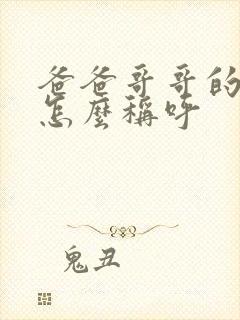 爸爸哥哥的
怎麼稱呼
鬼丑